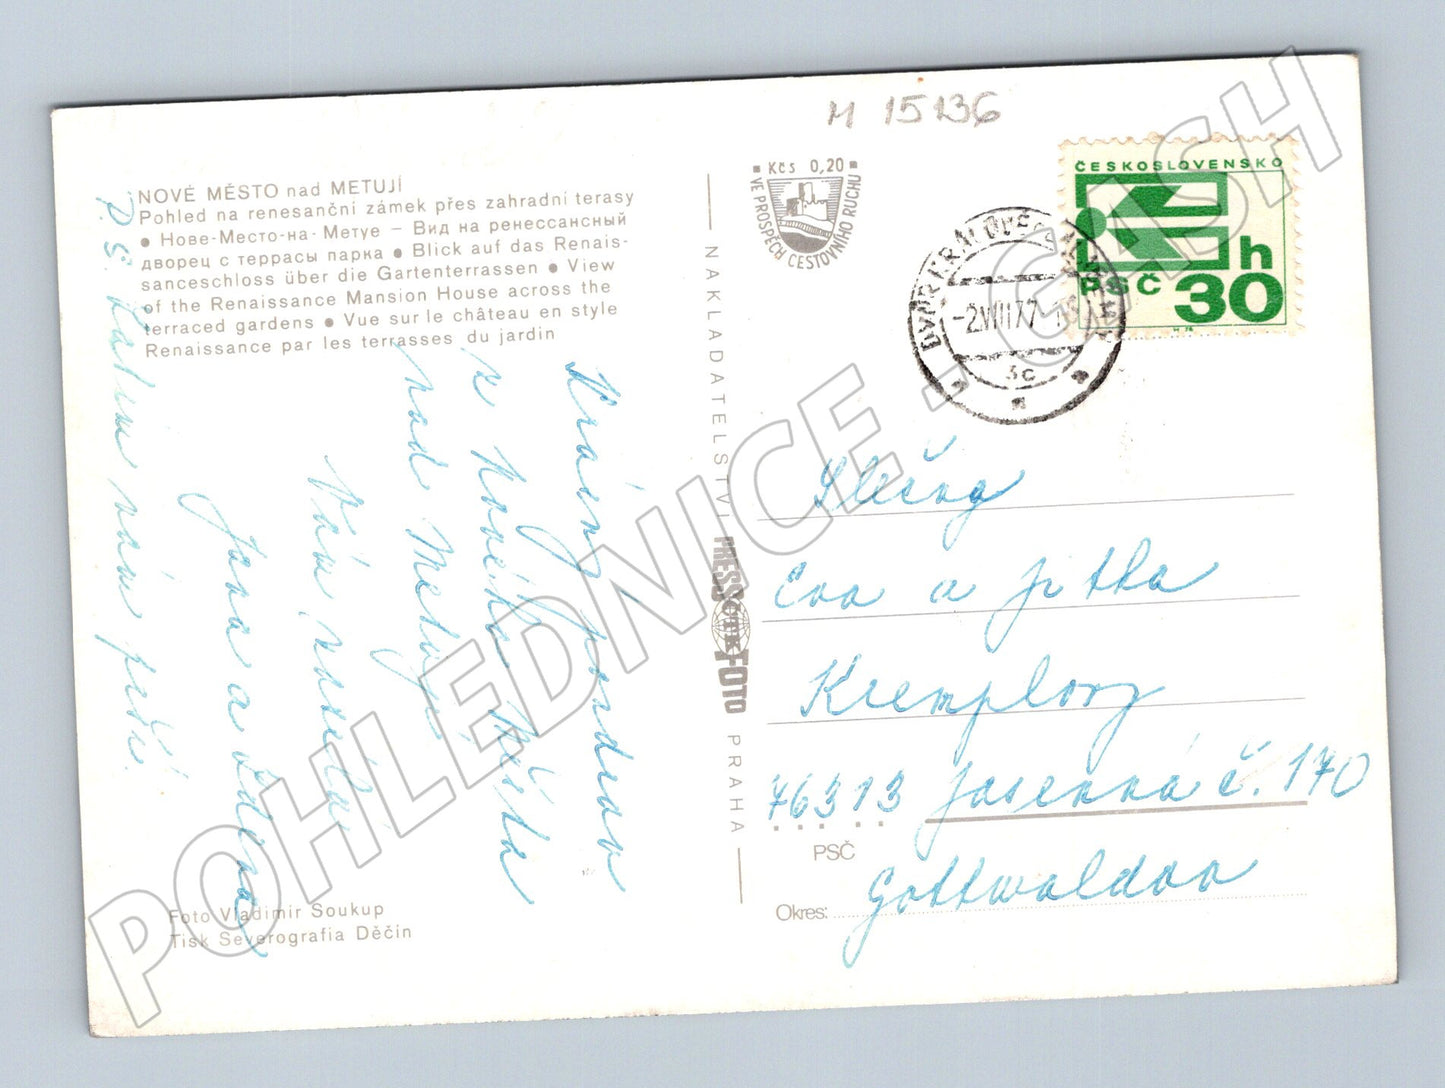 M 15136
NOVÉ MĚSTO nad METUJÍ
Pohled na renesanční zámek přes zahradní terasy
● Нове-Место-на-Метуе – Вид на ренессансный
дворец с террасы парка ● Blick auf das Renais-
sanceschloss über die Gartenterrassen ● View
of the Renaissance Mansion House across the
terraced gardens ● Vue sur le château en style
Renaissance par les terrasses du jardin
Krásný pozdrav
z Nového Města
nad Metují
Vám zasílá
Jana a Zdena
P.S. Zatím nám prší.
Foto Vladimír Soukup
Tisk Severografia Děčín
NAKLADATELSTVÍ PRESSFOTO PRAHA
ČTK
Kčs 0,20
VE PROSPĚCH CESTOVNÍHO RUCHU
ČESKOSLOVENSKO
h
PSČ 30
DVŮR KRÁLOVÉ
-2.VIII.77
3c
Slečny
Eva a Jitka
Kremplovy
76313 Jasenná č. 170
PSČ
Okres: Gottwaldov
POHLEDNICE - CASH